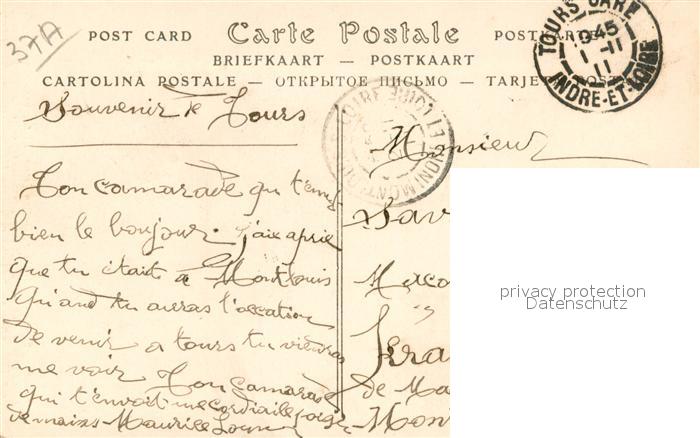 37A
POST CARD Carte Postale POSTKARTE
BRIEFKAART — POSTKAART
CARTOLINA POSTALE — ОТКРЫТОЕ ПИСЬМО — TARJETA POSTAL
TOURS GARE
1 -11
11
INDRE-ET-LOIRE
Souvenir de Tours
Monsieur
Ton camarade qui t'envoi
bien le bonjour. j'aix apris
que tu étaits a Montlouis
Quand tu auras l'occation
de venir a tours tu viendras
me voir Ton camarade
qui t'envoit une cordiaille
de mains Maurice
Sav
de Ma
Mon
privacy protection
Datenschutz